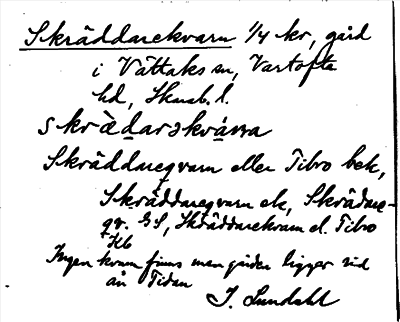 Skräddarekvarn 1/4 kr, gård
i Vättaks sn, Vartofta
hd, Skarab. l.
skrä̀darəkvána
Skräddareqvarn eller Tibro bek,
Skräddareqvarn ek, Skrädare-
qv. GS, Skräddarekvarn el. Tibro
Hlb
Ingen kvarn finns men gården ligger vid
ån Tidan
J. Lundahl